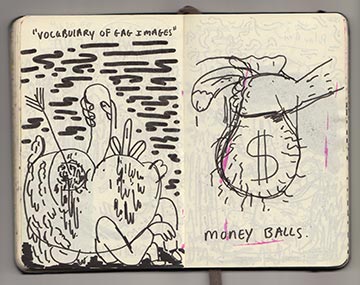 "VOCABULARY OF GAG IMAGES"
$
MONEY BALLS.